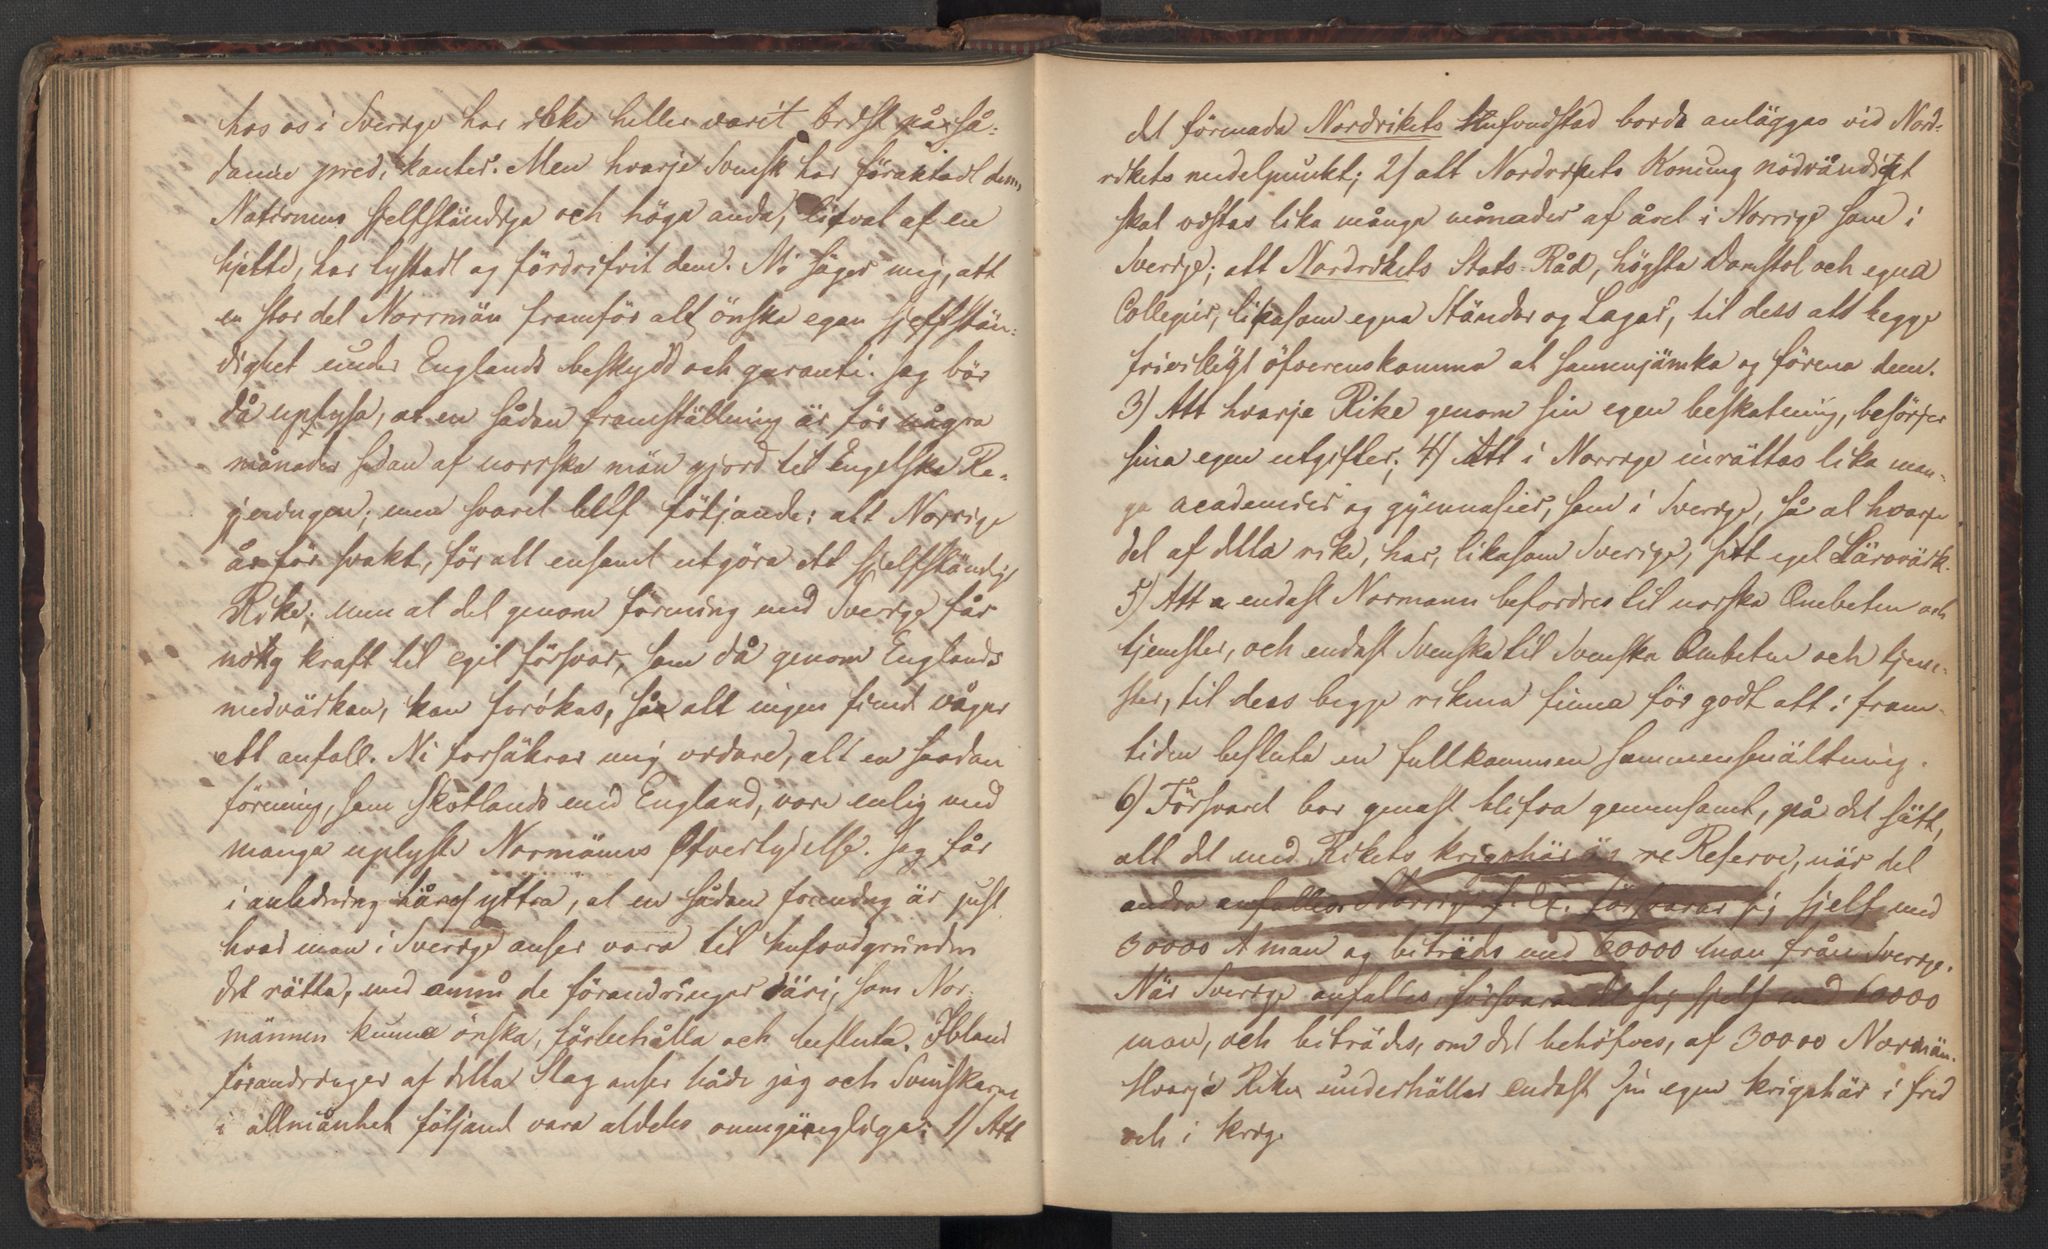 hos os i Sverrge har ikke heller varit brist på så-
danne predikanter. Men hvarje Svensk har föraktadt dem,
Nationens sjelfständiga och höga anda, lifval af en
hjette, har tystadt og fördrifvit dem. Ni säger mig, att
en stor del Norrmän framför alt önska egen sjelfstän-
dighet under Englands beskydd och garanti. Jag bör
då uplysa, at en sådan framställning är för några
månader sedan af norrska män gjord til Engelska Re-
gjeringen; men svaret blef följande: att Norrige
är för svakt, för att ensamt utgöra ett sjelfständigt
Rike, men at det genom förening med Sverrge får
nokg kraft til eget försvar, som då genom Englands
medvärkan, kan forökas, så att ingen fiend våger
ett anfall. Ni forsäkrar mig vidare, att en saadan
förening, som Skotlands med England, vore enlig med
mange uplyste Normänns Öfvertydelse. Jag får
i anledning häraf yttra, at en sådan forening är just
hvad man i Sverrge anser vara til hufvudgrunden
det rätta, med ännu de förandringer däri, som Nor-
männen kunna önska, förbehålla och besluta. Ibland
förandringer af detta Slag anser både jag och Svenskarne
i allmänhet följand vara aldeles oumgängliga: 1) Att
det förenada Nordrikets Hufvudstad borde anlägges vid Nord-
rikets medelpunkt; 2) att Nordrikets Konung nödvändigt
skal vistas lika månge månader af året i Norrige som i
Sverrge; att Nordrikets Stats-Råd, högsta Domstol och egna
Collegier, likasom egna Ständer og Lagar, til dess att begge
frivilligt öfverenskomma at sammenjämka og förena dem.
3) Att hvarje Rike genom sin egen beskatning, besörjer
sina egen utgifter; 4) Att i Norrge inrättas lika man-
ga academier og gymnasier, som i Sverrge, så at hvarje
del af detta rike, har, likasom Sverige, sitt eget Lärovärk.
5) Att endast Normann befordres til norska Ombeten och
tjenster, och endast Svenska til Svenska Ombeten och tjen-
ster, til dess begge rikena finna för godt att i fram-
tiden besluta en fullkommen sammensmältning.
6) Försvaret bor genast blifva gemensamt, på det sätt,
att det med Rikets krigshär är Reserve, när det
andra anfalles. Norrige försvarar sig sjelf med
30000 man og biträds med 60000 man från Sverrge.
När Sverrge anfalles, försvarar det sig sjelf med 60000
man, och biträdes, om det behöfves, af 30000 Normän.
Hvarje Rike underhåller endast sin egen krigshär i fred
och i krig.